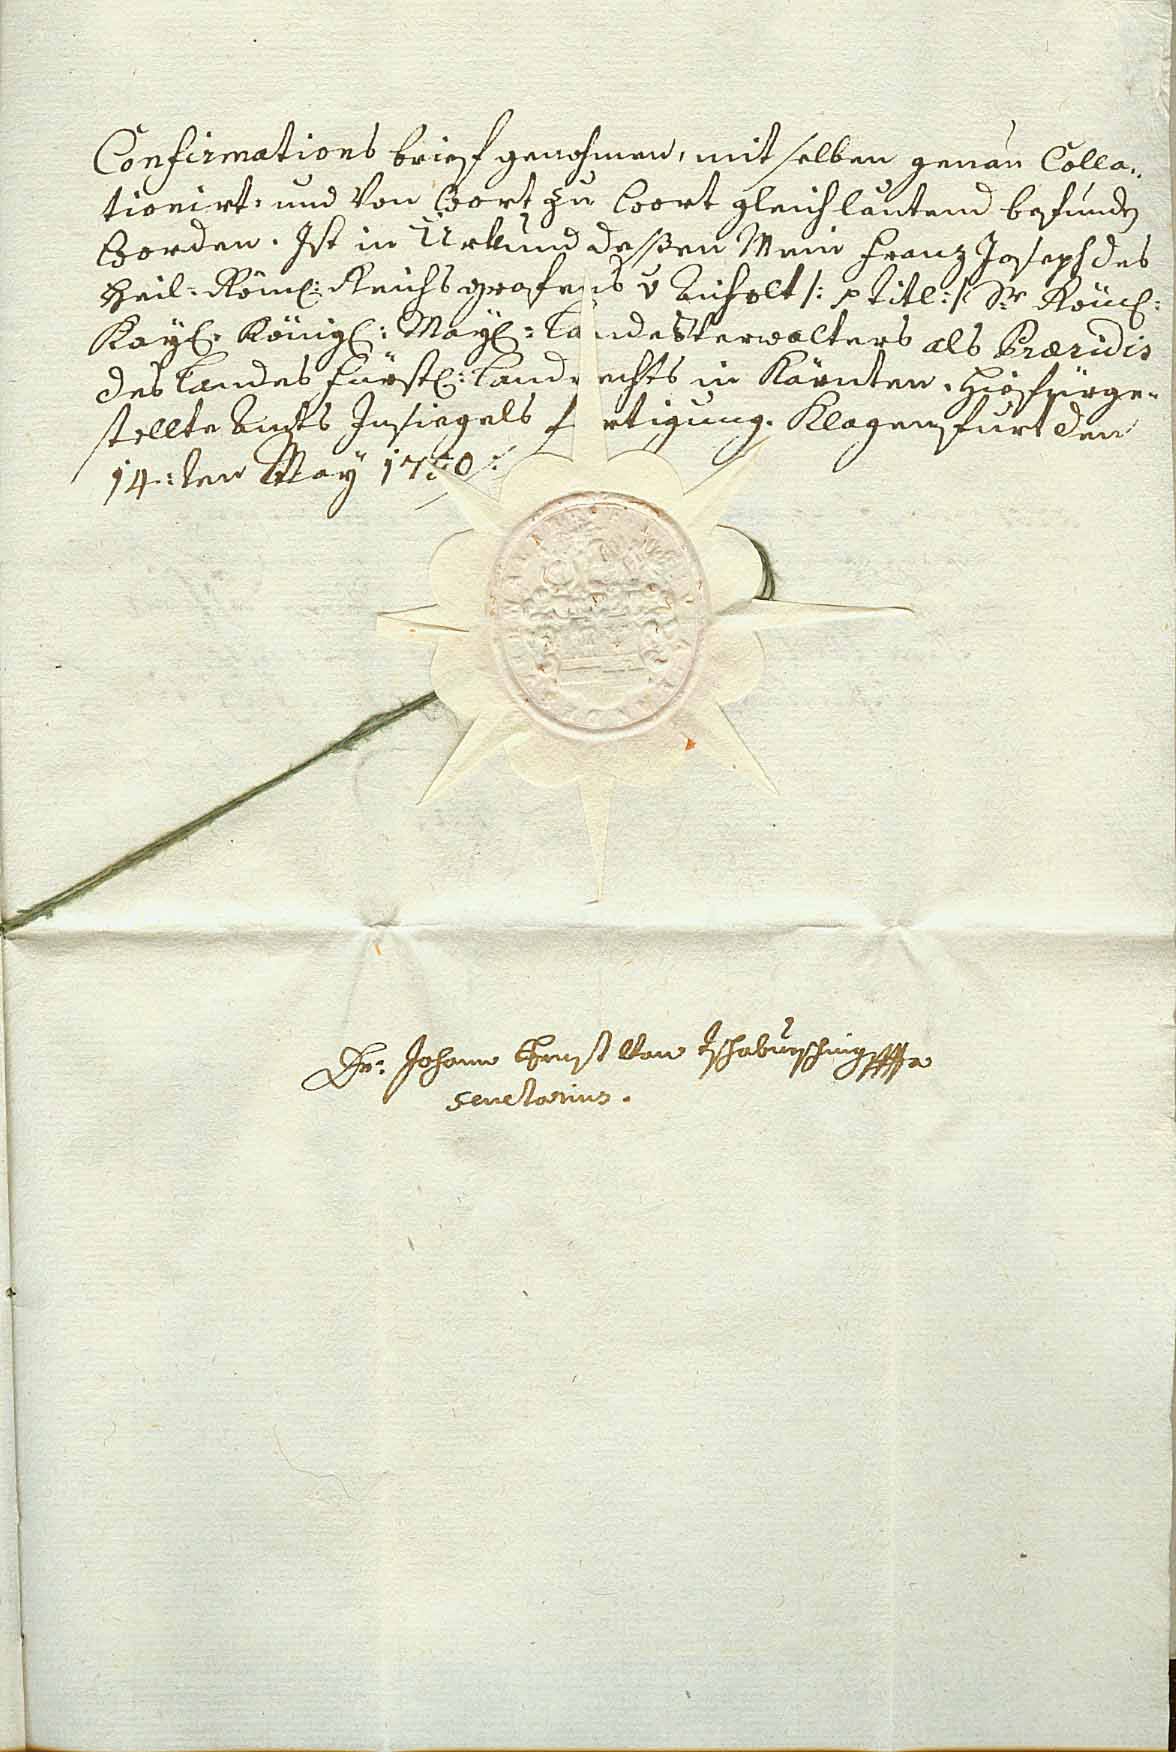 Confirmations brief genohmen, mit selben genau Colla-
tionirt, und Von Wort zu Wort gleichlautend befunden
Worden. Ist in Urkund dessen Mein Franz Joseph des
Heil: Röm: Reichs grafens v : titl: Sr Röm:
Kayl: Königl: Mayl: Landesverwalters als Præsidis
des Landes fürstl: Landrechts in Kärnten, hiefürge-
stellte Amts Insiegels fertigung. Klagenfurt den
14:ten May 1750
Johann Ernst Von
Secretarius.